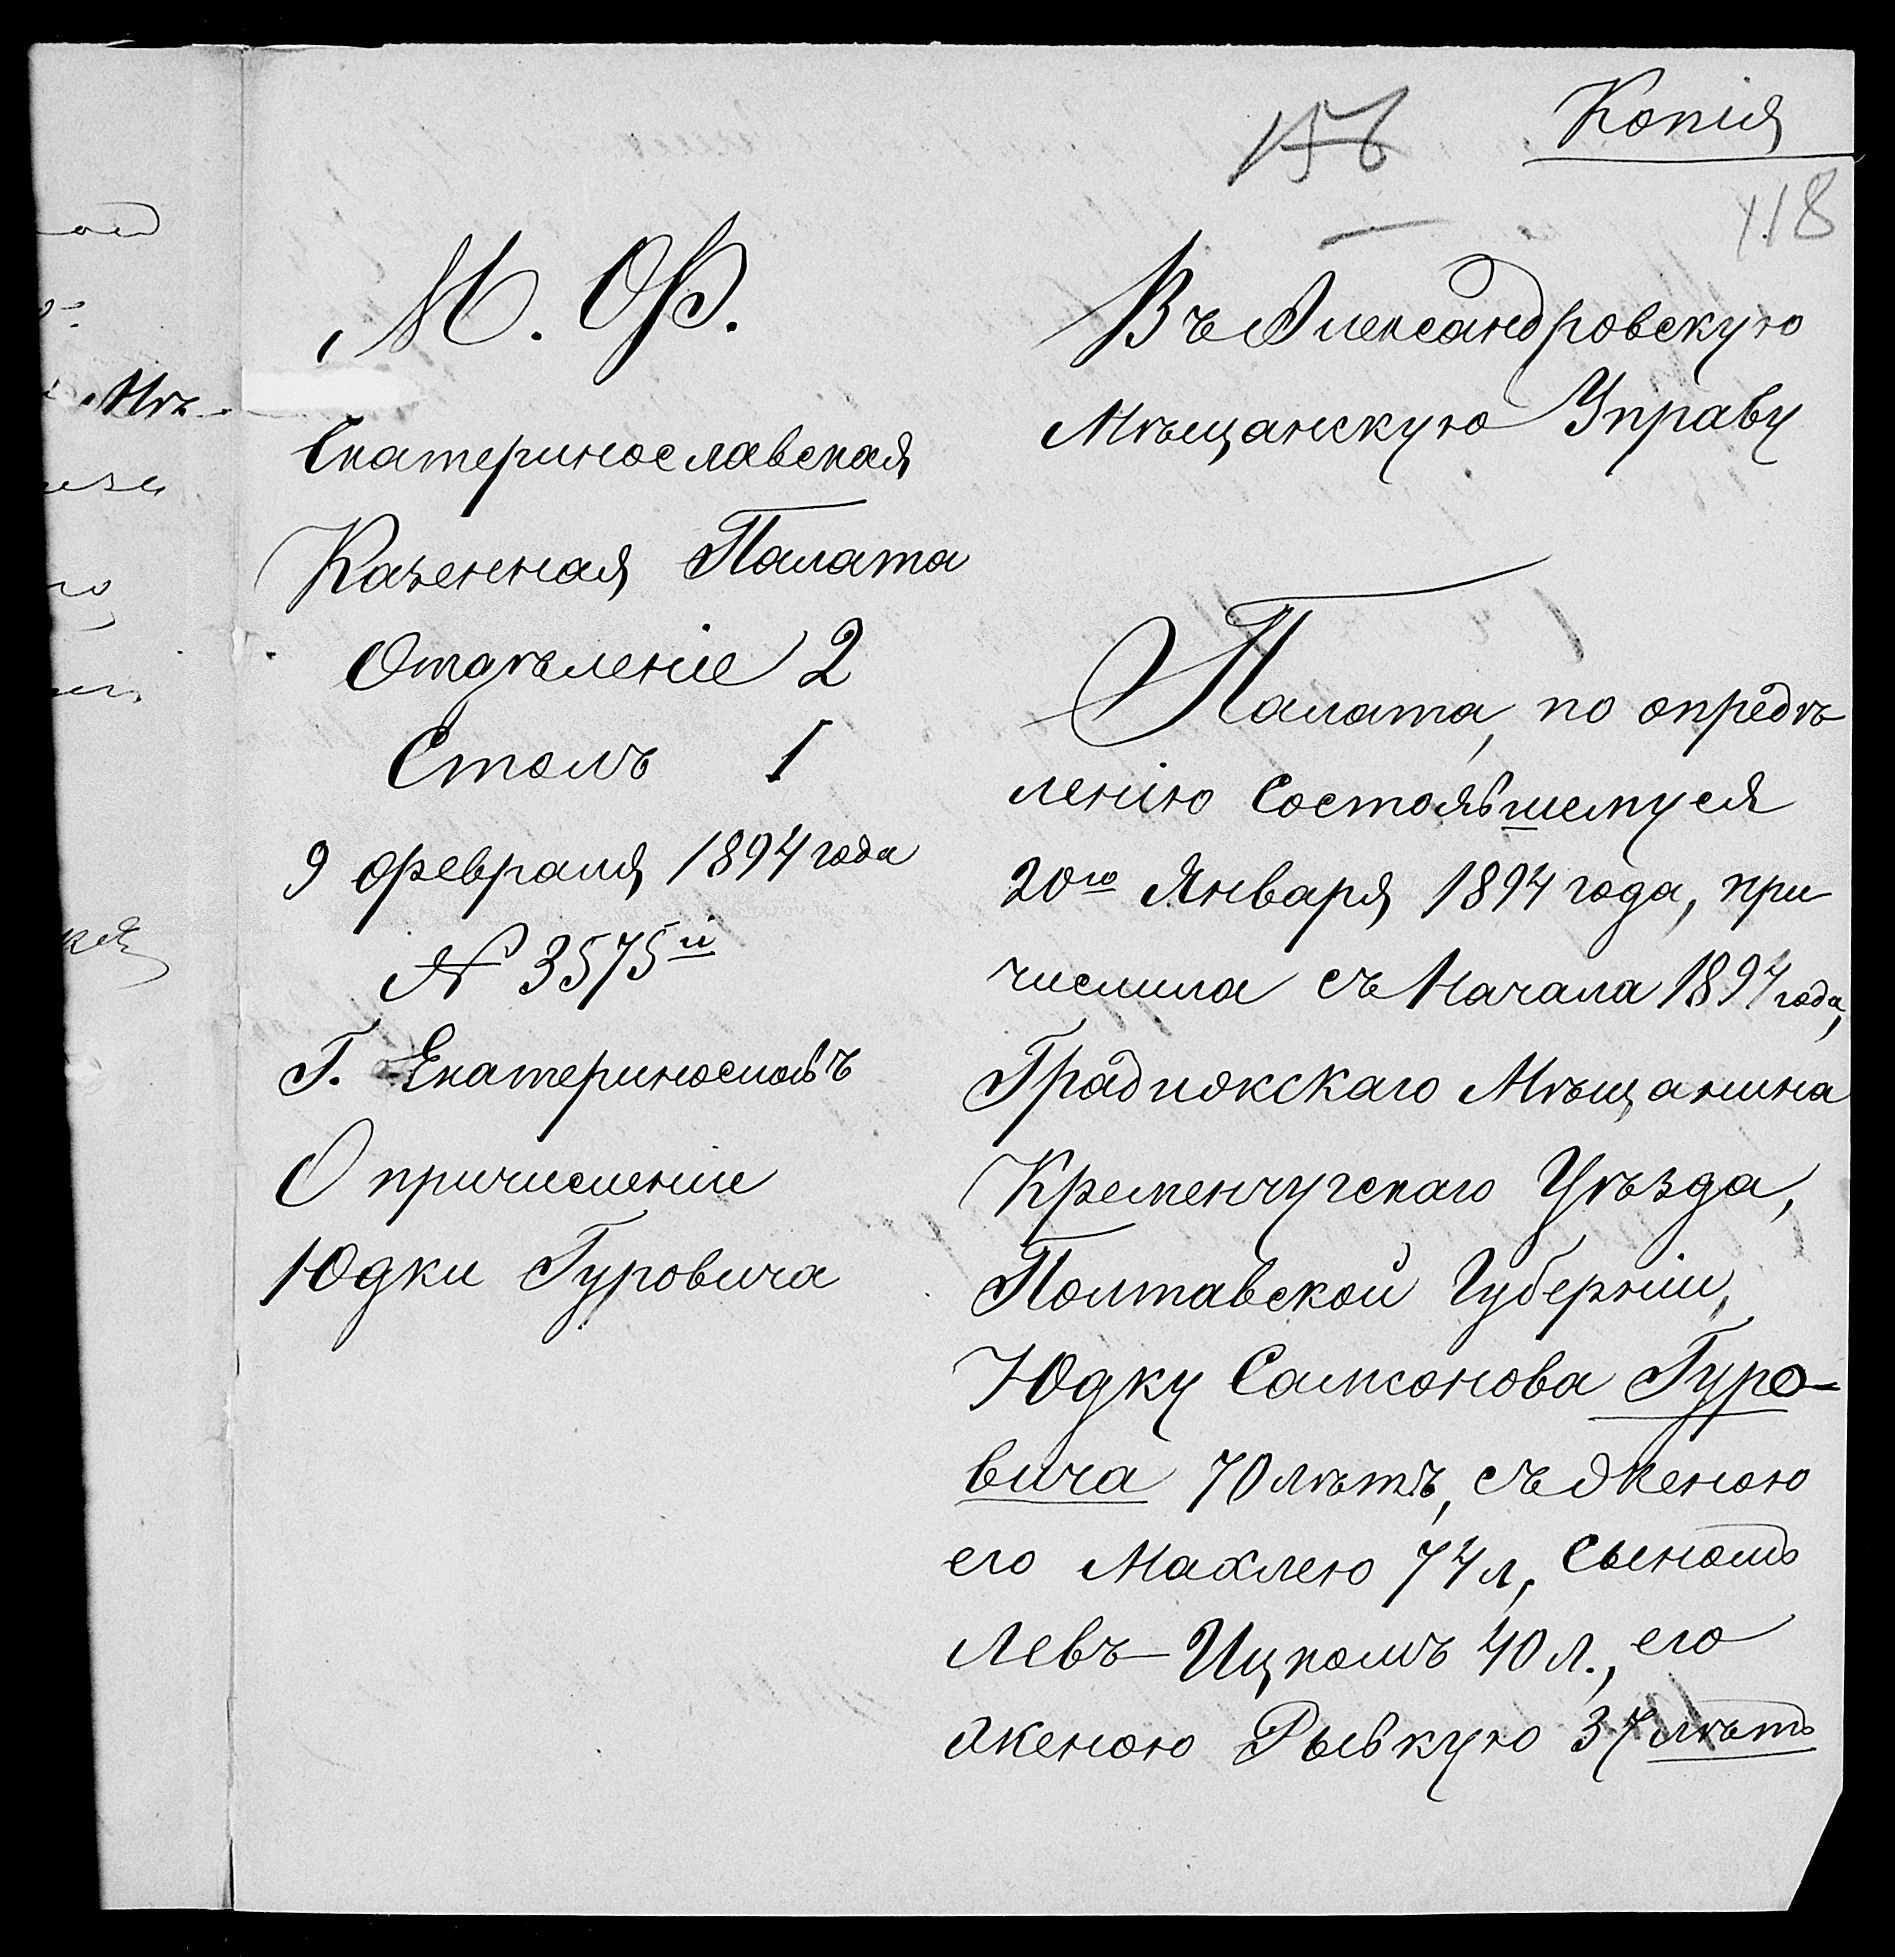 Копія
156
118
М. Ф.
Екатеринославская
Казенная Палата
Отдѣленіе 2
Столъ 1
9 февраля 1894 года
№ 3575й
Г. Екатеринославъ
О причисленіе
Юдки Гуровича
Въ Александровскую
Мѣщанскую Управу
Палата, по опредѣ
ленію состоявшемуся
20го Января 1894 года, при
числила съ Начала 1894 года,
Градижскаго Мѣщанина
Кременчугскаго Уѣзда,
Полтавской Губерніи,
Юдку Самсонова Гуро-
вича 70 лѣтъ, съ женою
его Махлею 74 л, сыномъ
Левъ-Ицкомъ 40 л., его
женою Рывкую 37 лѣтъ